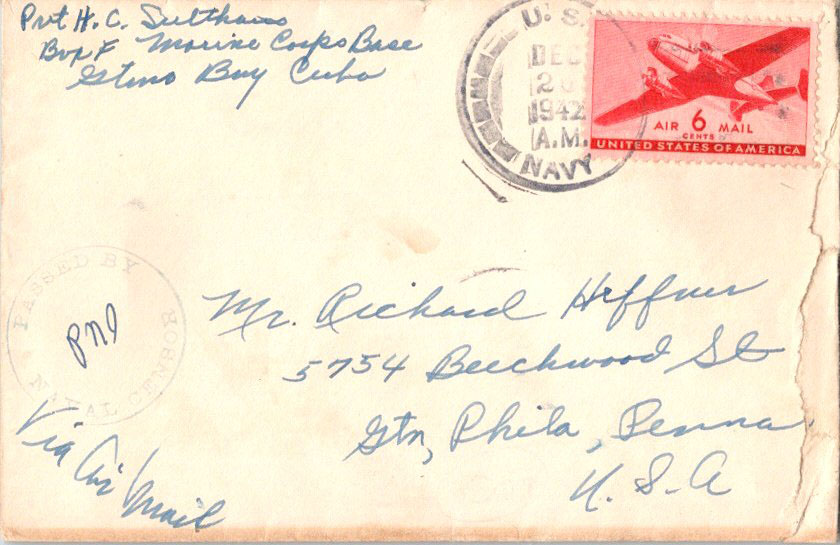 Pvt H. C. Sulthaus
Box F Marine Corps Base
Gtmo Bay Cuba
U. S.
DEC
20
1942
A.M.
NAVY
AIR 6 MAIL
CENTS
UNITED STATES OF AMERICA
PASSED BY
NAVAL CENSOR
Mr. Richard Heffner
5754 Beechwood St
Gtn, Phila, Penna.
U. S. A
Via Air Mail